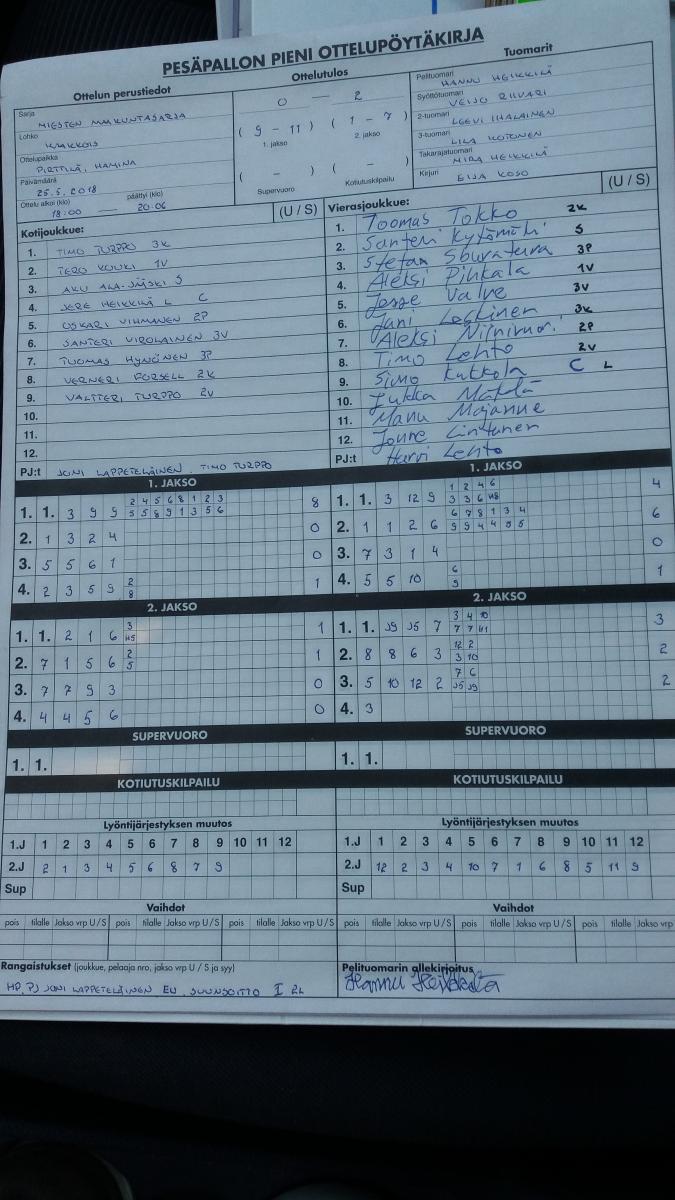 PESÄPALLON PIENI OTTELUPÖYTÄKIRJA
Ottelun perustiedot
Sarja
MIESTEN MAAKUNTASARJA
Lohko
KAAKKOIS
Ottelupaikka
PIRTTILÄ, HAMINA
Päivämäärä
25.5.2018
Ottelu alkoi (klo) päättyi (klo)
18:00 — 20.06
Ottelutulos
0 — 2
( 9 - 11 ) ( 1 - 7 )
1. jakso 2. jakso
( - ) ( - )
Supervuoro Kotiutuskilpailu
Tuomarit
Pelituomari
HANNU HEIKKILÄ
Syöttötuomari
VEIJO RIIVARI
2-tuomari
LEEVI IHALAINEN
3-tuomari
KOTONEN
Takarajatuomari
MIRA HEIKKILÄ
Kirjuri
EIJA KOSO
Kotijoukkue: (U / S)
1. TIMO TURPPO 3K
2. TERO KOUKI 1V
3. AKU ALA-JÄÄSKI S
4. JERE HEIKKILÄ L C
5. OSKARI VIHMANEN 2P
6. SANTERI VIROLAINEN 3V
7. TUOMAS HYNÖNEN 3P
8. VERNERI FORSELL 2K
9. VALTTERI TURPPO 2V
10.
11.
12.
PJ:t JONI LAPPETELÄINEN, TIMO TURPPO
Vierasjoukkue: (U / S)
1. Toomas Tokko 2K
2. Santeri Kytömäki S
3. Stefan 3P
4. Aleksi Pihkala 1V
5. Jesse Valve 3V
6. Jani Leskinen 3K
7. Aleksi 2P
8. Timo Lehto 2V
9. Simo Kukkola C L
10. Jukka Mäkelä
11. Manu Majanne
12. Jonne Lintunen
PJ:t Harri Lehto
1. JAKSO
2 4 5 6 8 1 2 3
1. 1. 3 9 9 5 5 8 9 1 3 5 6 8
2. 1 3 2 4 0
3. 5 5 6 1 0
4. 2 3 5 9 2 8 1
2. JAKSO
1. 1. 2 1 6 3 1
2. 7 1 5 6 2 5 1
3. 7 7 9 3 0
4. 4 4 5 6 0
SUPERVUORO
1. 1.
KOTIUTUSKILPAILU
1. JAKSO
1 2 4 6
1. 1. 3 12 9 3 3 6 4
6 7 8 1 3 4
2. 1 1 2 6 9 9 4 4 6
3. 7 3 1 4 0
4. 5 5 10 6 9 1
2. JAKSO
3 4 10
1. 1. 7 7 7 3
12 2
2. 8 8 6 3 3 10 2
7 6
3. 5 10 12 2 2
4. 3
SUPERVUORO
1. 1.
KOTIUTUSKILPAILU
Lyöntijärjestyksen muutos
1.J 1 2 3 4 5 6 7 8 9 10 11 12
2.J 2 1 3 4 5 6 8 7 9
Sup
Vaihdot
pois tilalle Jakso vrp U/S pois tilalle Jakso vrp U/S pois tilalle Jakso vrp U/S
Lyöntijärjestyksen muutos
1.J 1 2 3 4 5 6 7 8 9 10 11 12
2.J 12 2 3 4 10 7 1 6 8 5 11 9
Sup
Vaihdot
pois tilalle Jakso vrp U/S pois tilalle Jakso vrp U/S pois tilalle Jakso vrp
Rangaistukset (joukkue, pelaaja nro, jakso vrp U / S ja syy)
HP, PJ JONI LAPPETELÄINEN EU SUUNSOITTO I 2L
Pelituomarin allekirjoitus
Hannu Heikkilä